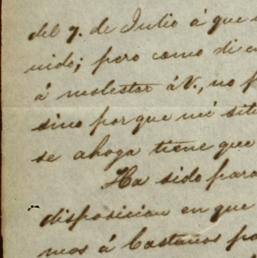 del 7. de Julio á que
nido; pero como di
á molestar á V., no p
sino por que mi situ
se ahoga tiene que
Ha sido para
disposicion en que
mos á Castaños pa